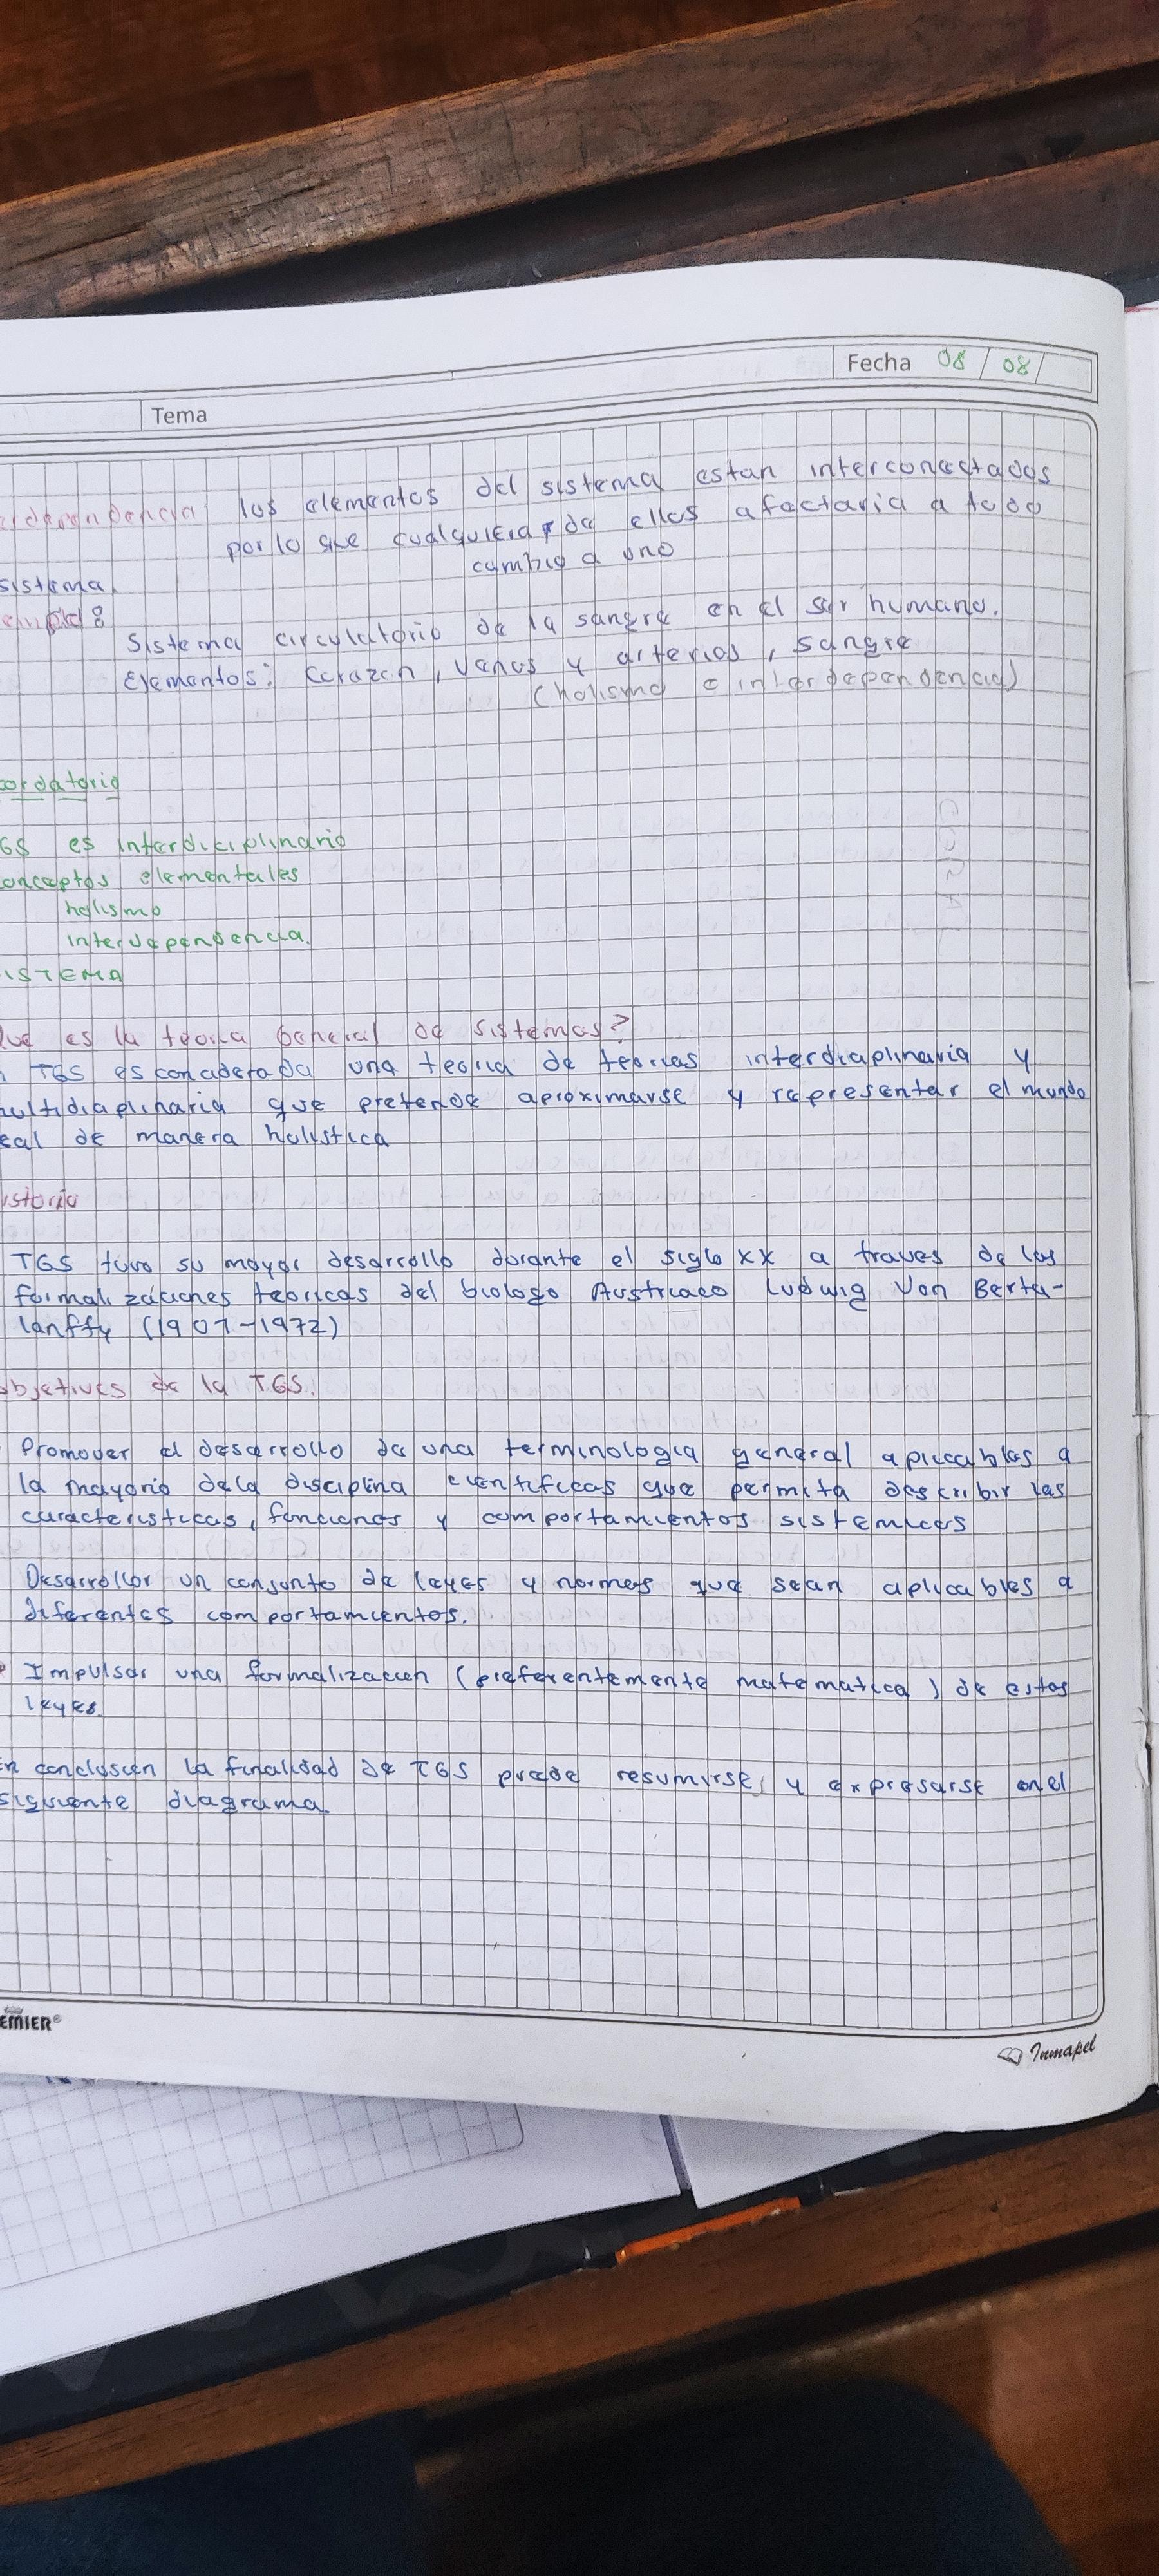 Fecha 08 / 08 /
Tema
los elementos del sistema estan interconectados
por lo que cualquiera de ellos afactaria a todo
cambio a uno
sistema
Sistema circulatorio de la sangre en el ser humano.
Elementos: Corazon, venas y arterias, sangre
(holismo e interdependencia)
cordatorio
GS es interdiciplinario
onceptos elementales
holismo
interdependencia.
ISTEMA
Que es la teoria General de sistemas?
TGS es conciderada una teoria de teorias interdiciplinaria y
ultidiciplinaria que pretende aproximarse y representar el mundo
eal de manera holistica
istoria
TGS tuvo su mayor desarrollo durante el siglo XX a traves de las
formalizaciones teoricas del biologo Austriaco Ludwig Von Berta-
lanffy (1907-1972)
objetivos de la TGS.
Promover el desarrollo de una terminologia general aplicables a
la mayoria dela disciplina cientificas que permita describir las
caracteristicas, funciones y comportamientos sistemicos
Desarrollar un conjunto de leyes y normas que sean aplicables a
diferentes comportamientos.
Impulsar una formalizacion (preferentemente matematica) de estas
leyes.
n conclusion la finalidad de TGS puede resumirse y expresarse en el
siguiente diagrama
EMIER®
Inmapel